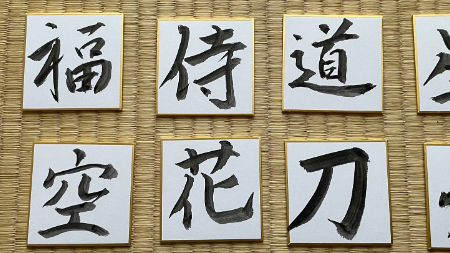 福 侍 道
空 花 刀